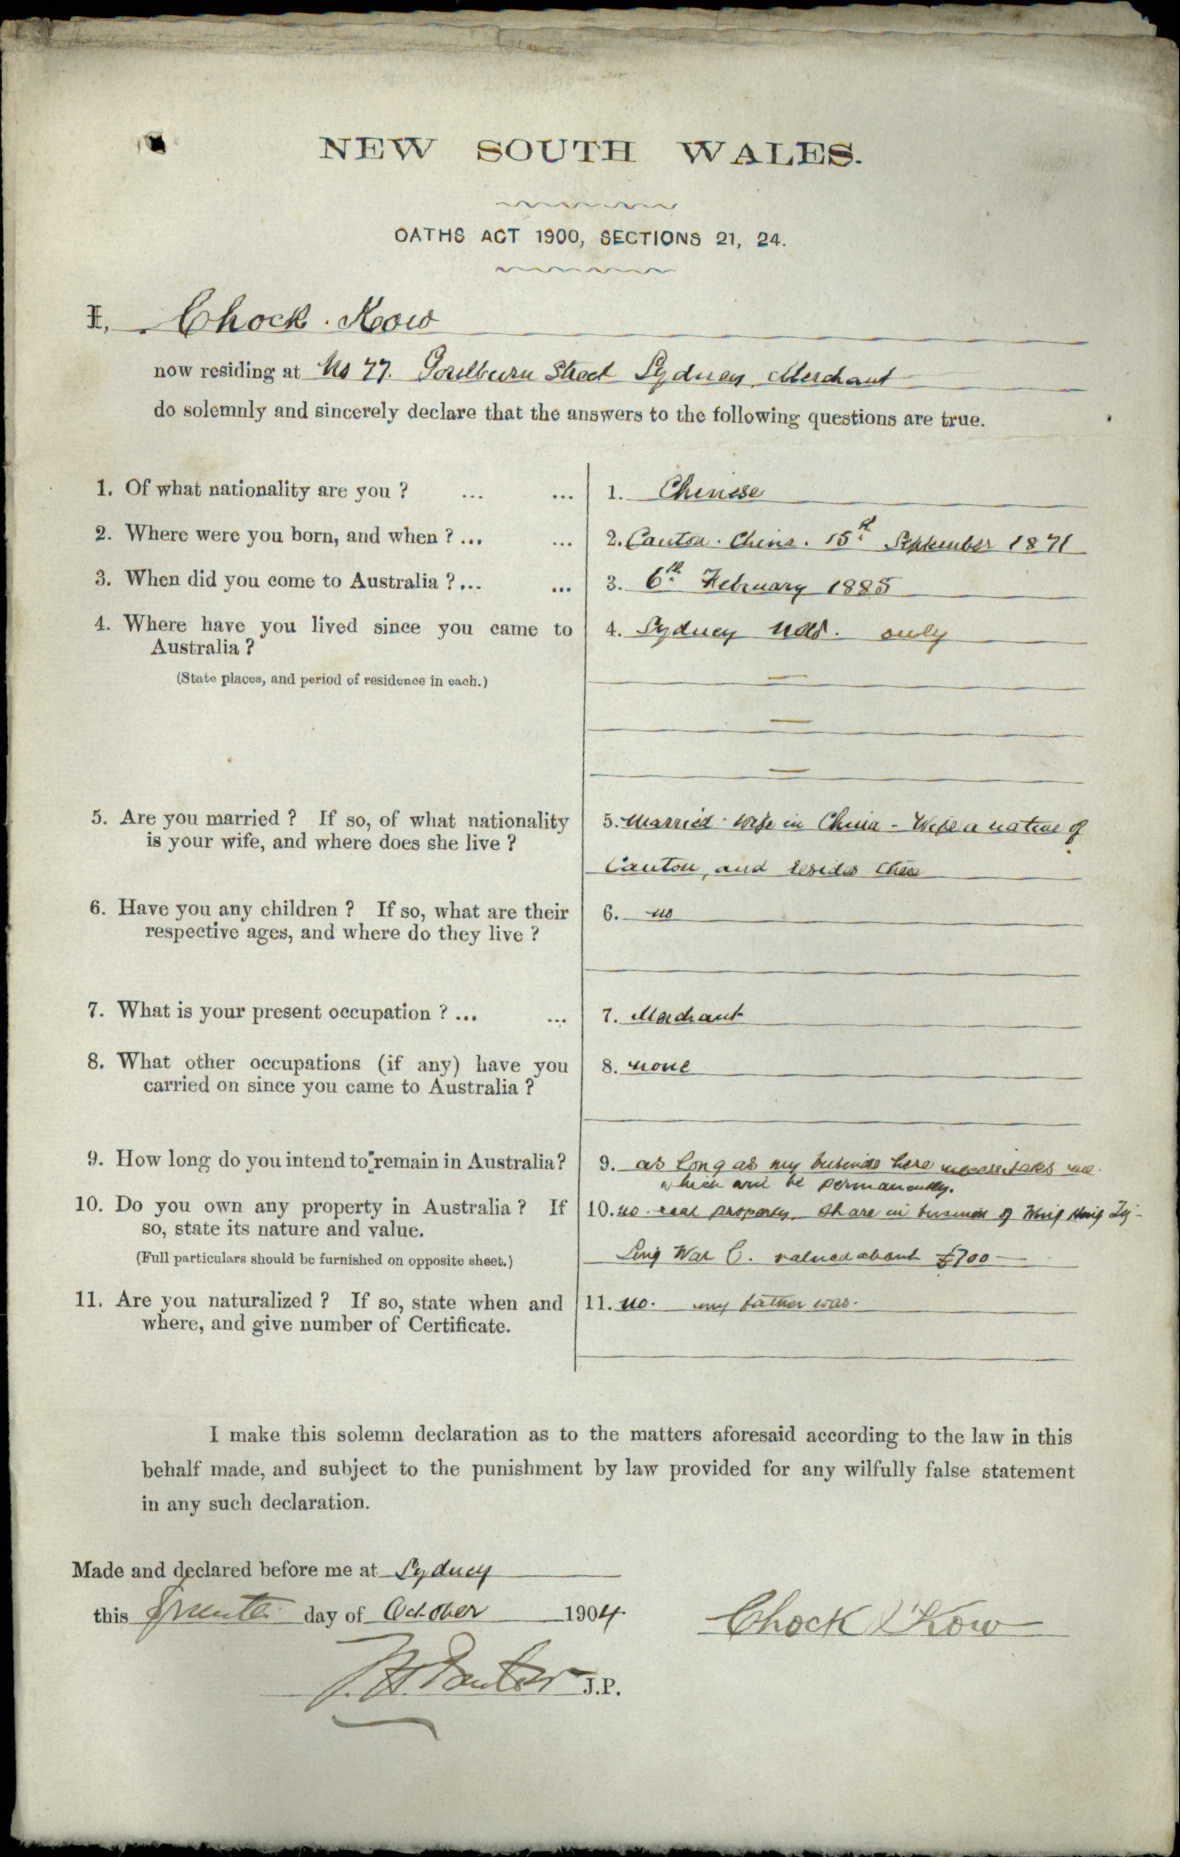 NEW SOUTH WALES.
OATHS ACT 1900, SECTIONS 21, 24.
I, Chock Kow
now residing at No 77. Goulburn Street Sydney, Merchant
do solemnly and sincerely declare that the answers to the following questions are true.
1. Of what nationality are you ? ... ... 1. Chinese
2. Where were you born, and when ? ... ... 2. Canton. China. 15th September 1871
3. When did you come to Australia ? ... ... 3. 6th February 1885
4. Where have you lived since you came to 4. Sydney NSW. only
Australia ?
(State places, and period of residence in each.) —
—
—
5. Are you married ? If so, of what nationality 5. Married - Wife in China - Wife a native of
is your wife, and where does she live ?
Canton, and resides there
6. Have you any children ? If so, what are their 6. no
respective ages, and where do they live ?
7. What is your present occupation ? ... ... 7. Merchant
8. What other occupations (if any) have you 8. none
carried on since you came to Australia ?
9. How long do you intend to remain in Australia ? 9. as long as my business here necessitates me.
which will be permanently.
10. Do you own any property in Australia ? If 10. no real property. Share in business of
so, state its nature and value.
(Full particulars should be furnished on opposite sheet.) War C. valued about £700 —
11. Are you naturalized ? If so, state when and 11. no. my father was.
where, and give number of Certificate.
I make this solemn declaration as to the matters aforesaid according to the law in this
behalf made, and subject to the punishment by law provided for any wilfully false statement
in any such declaration.
Made and declared before me at Sydney
this day of October 1904.
Chock Kow
J.P.